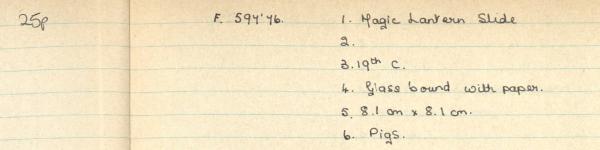 25p F. 594'76. 1. Magic Lantern Slide
2.
3. 19th C.
4. Glass bound with paper.
5. 8.1 cm x 8.1 cm.
6. Pigs.